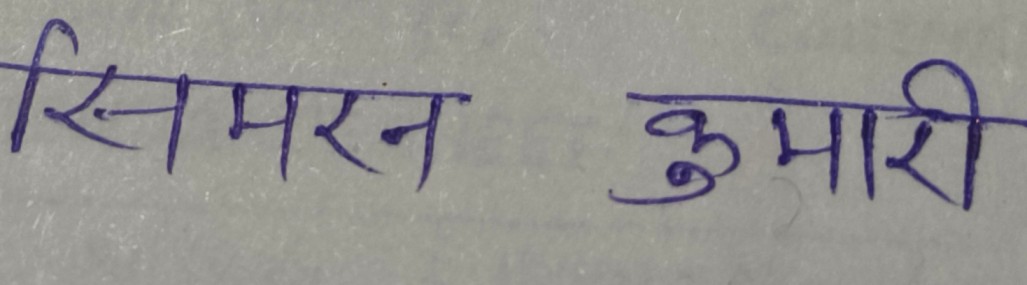 सिमरन कुमारी